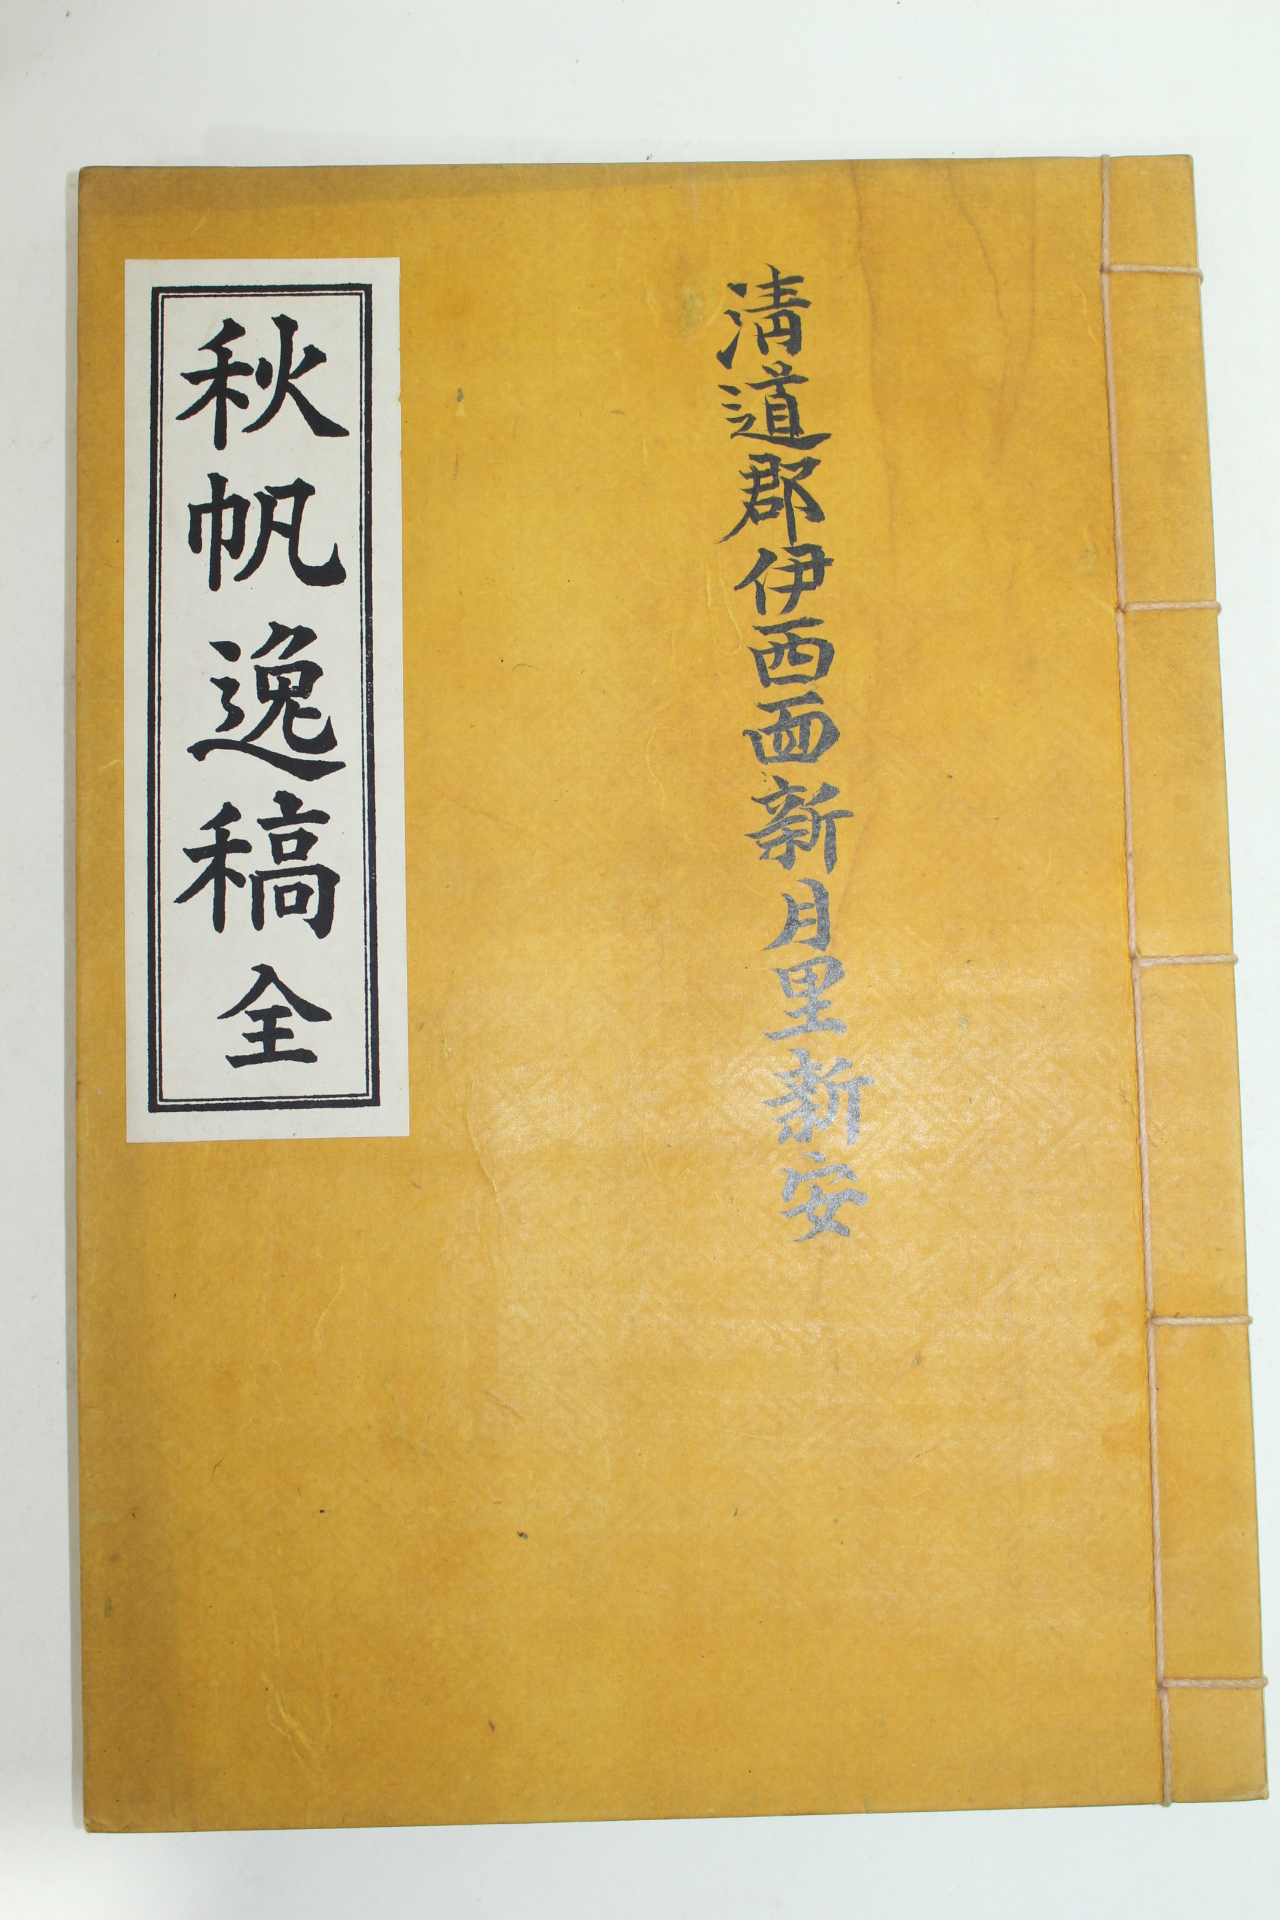 淸道郡伊西面新月里新安
秋帆逸稿全